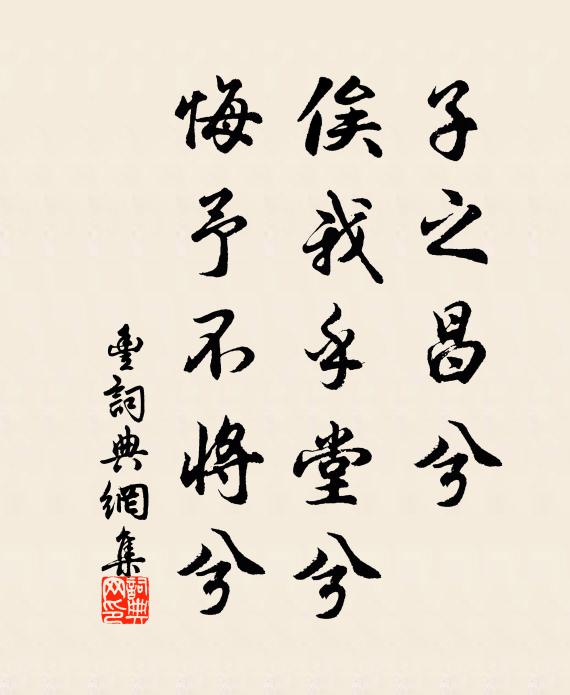 子之昌兮
俟我乎堂兮
悔予不將兮
豊詞典網集
詞典网印